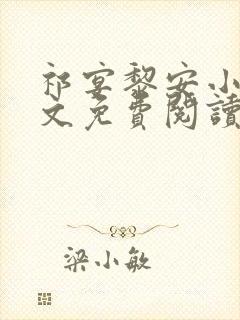 祁宴黎安小
文免費閱讀
梁小敏